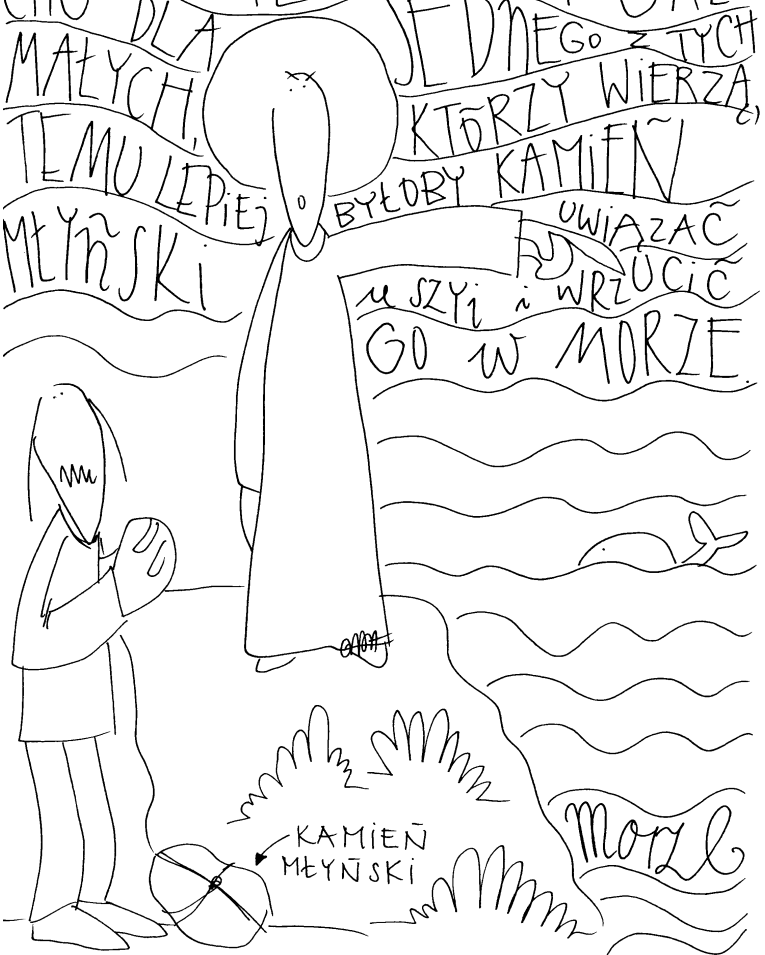 DLA JEDNEGO Z TYCH
MAŁYCH, KTÓRZY WiERZĄ,
TEMU LEPiEj BYŁOBY KAMiEŃ
MŁYŃSKi UWiĄZAĆ
u SZYi i WRZUCiĆ
GO W MORZE.
KAMiEŃ
MŁYŃSKi
morze